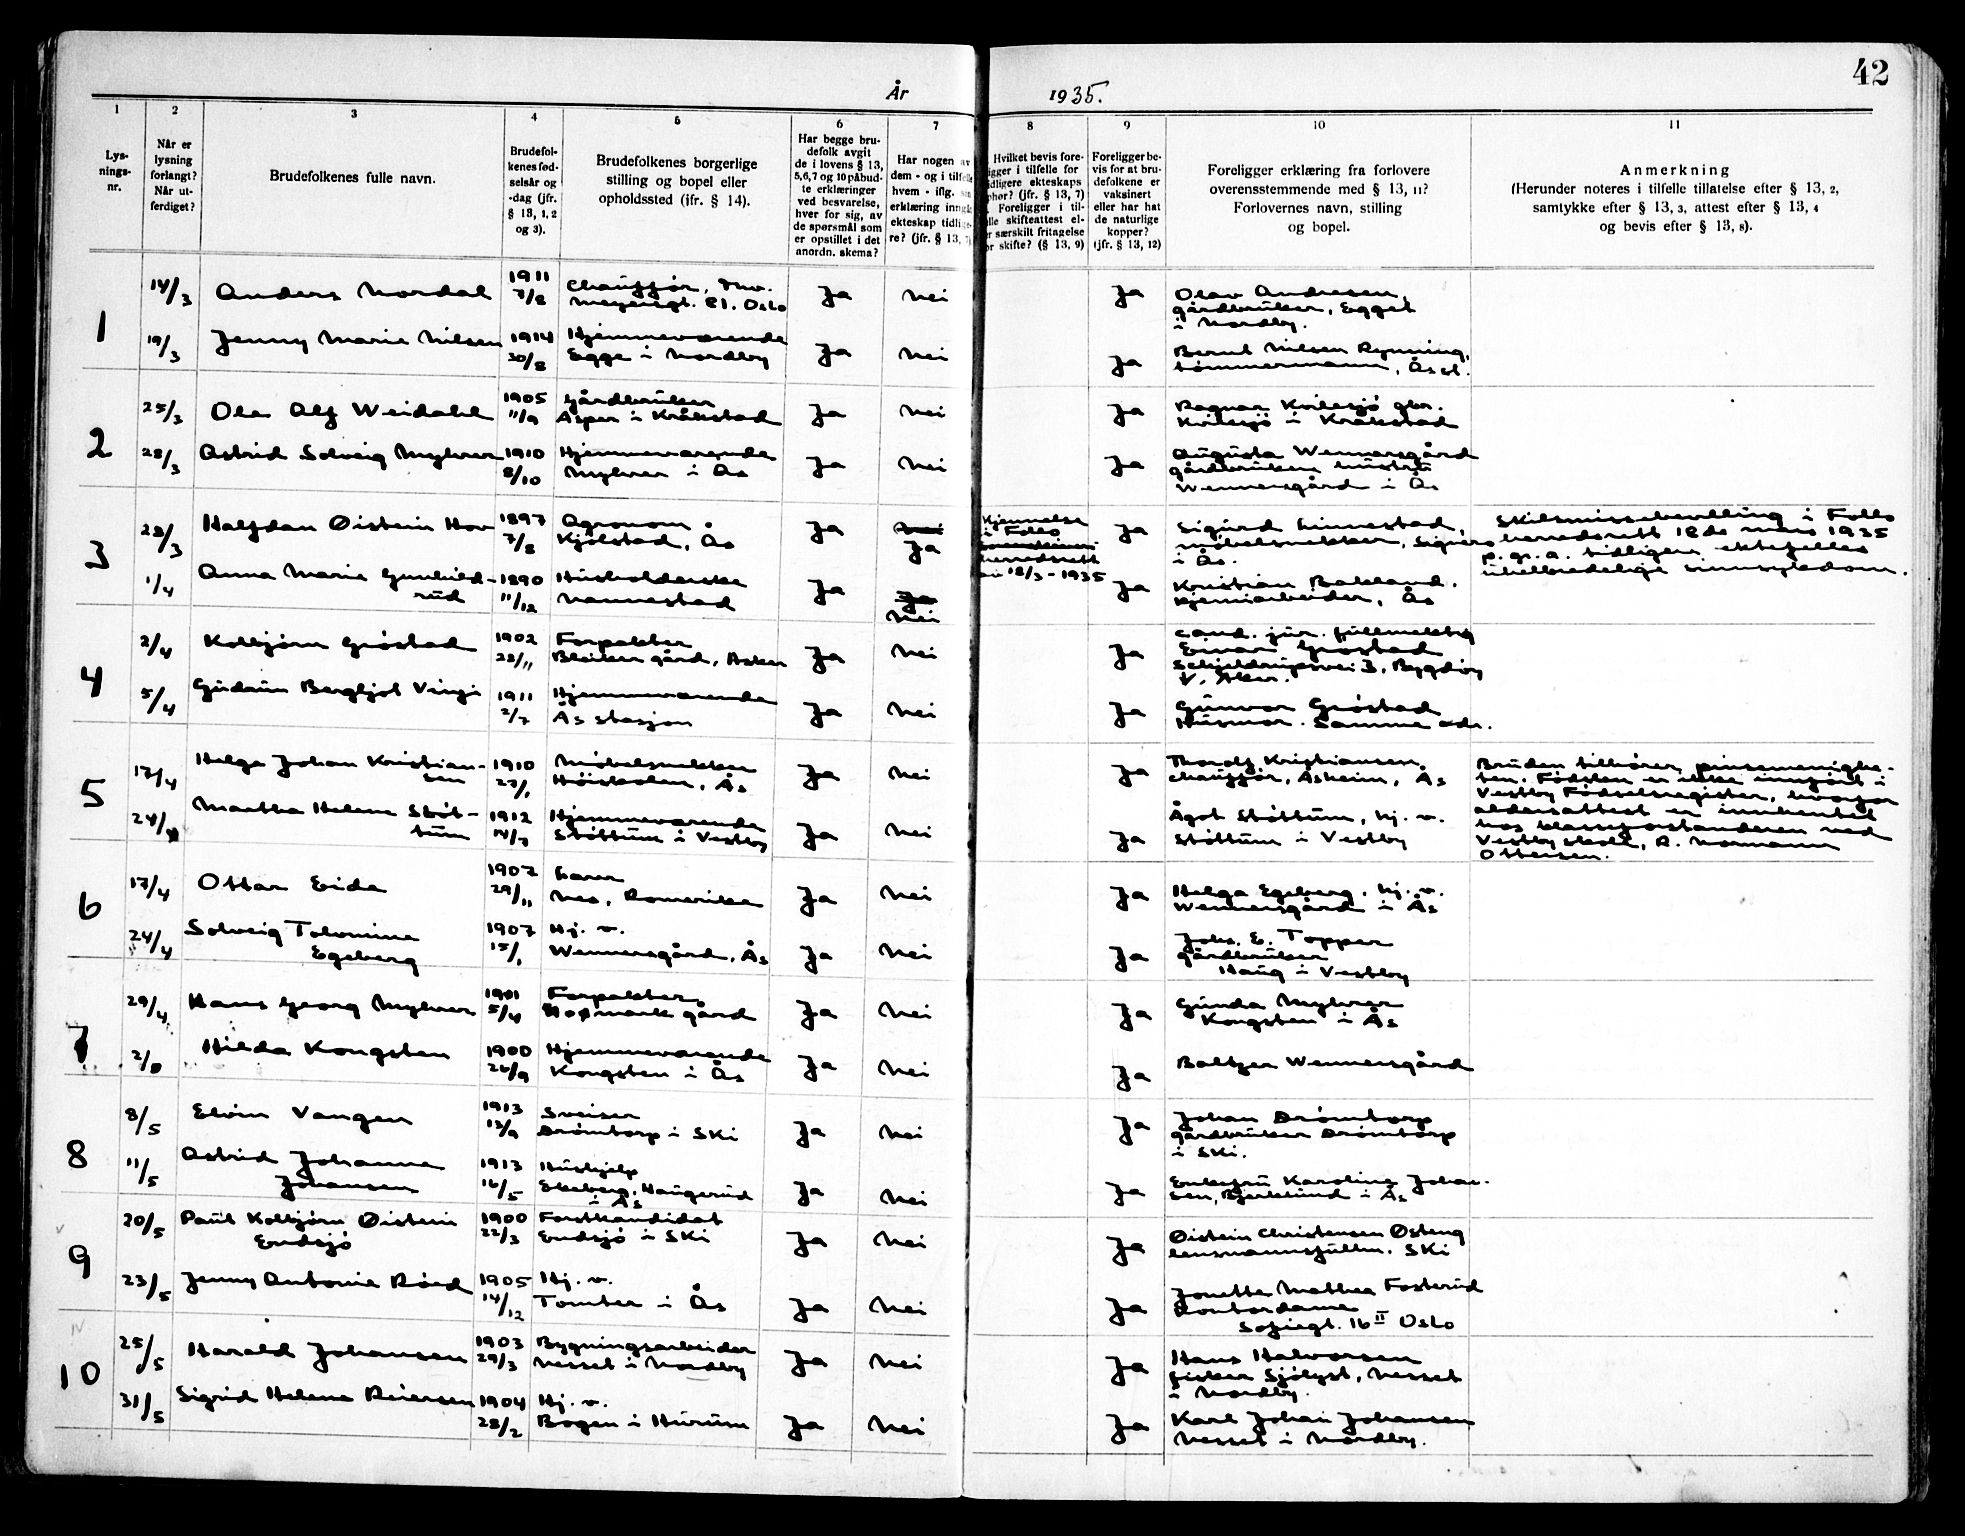 42
År 1935.
1
Lys-
nings-
nr.
2
Når er
lysning
forlangt?
Når ut-
ferdiget?
3
Brudefolkenes fulle navn.
4
Brudefol-
kenes fød-
selsår og
-dag (jfr.
§ 13, 1, 2
og 3).
5
Brudefolkenes borgerlige
stilling og bopel eller
opholdssted (jfr. § 14).
6
Har begge bru-
defolk avgit
de i lovens § 13,
5,6,7 og 10 påbud-
te erklæringer
ved besvarelse,
hver for sig, av
de spørsmål som
er opstillet i det
anordn. skema?
7
Har nogen av
dem - og i tilfelle
hvem - iflg.
erklæring inngått
ekteskap tidlige-
re? (jfr. § 13,
8
Hvilket bevis fore-
ligger i tilfelle for
tidligere ekteskaps
ophør? (jfr. § 13, 7)
Foreligger i til-
felle skifteattest el-
er særskilt fritagelse
for skifte? (§ 13, 9)
9
Foreligger be-
vis for at bru-
defolkene er
vaksinert
eller har hat
de naturlige
kopper?
(jfr. § 13, 12)
10
Foreligger erklæring fra forlovere
overensstemmende med § 13, 11?
Forlovernes navn, stilling
og bopel.
11
Anmerkning
(Herunder noteres i tilfelle tillatelse efter § 13, 2,
samtykke efter § 13, 3, attest efter § 13, 4
og bevis efter § 13, 8).
1
14/3 Anders Nordal 1911 7/8 Chauffør, Thv.
Meyersgt. 81. Oslo Ja Nei Ja Olav Andresen,
gårdbruker, Egget
i Nordby.
19/3 Jenny Marie Nilsen 1914 30/8 Hjemmeværende
Egge i Nordby Ja Nei Ja Bernt Nilsen Rynning,
tømmermann, Ås st.
2
25/3 Ola Alf Weidahl 1905 11/9 Gårdbruker
Asper i Kråkstad Ja Nei Ja Ragnar Kvilesjø gbr.
Kvilesjø i Kråkstad
28/3 Astrid Solveig Myhrer 1910 8/10 Hjemmeværende
Myhrer i Ås Ja Nei Ja Augusta Wennersgård
gårdbruker hustru
Wennersgård i Ås
3
28/3 Halfdan Øistein Hov 1897 7/8 Agronom
Kjølstad, Ås Ja Nei
Ja Kjennelse
i Follo
herredsrett
av 18/3-1935 Ja Sigurd Sinnestad,
møbelsnekker, Signero
i Ås.
Skilsmissebevilling i Follo
herredsrett 18de mars 1935
p. gr. a. tidligere ektefelles
uhelbredelige sinnsykdom.
1/4 Anna Marie Gunhild-
rud 1890 11/12 Husholderske
Nannestad Ja Ja
Nei Ja Kristian Bakland.
Hjemiarbeider, Ås
4
2/4 Kolbjørn Grøstad 1902 28/11 Forpakter
Bleiker gård, Asker Ja Nei Ja Cand. jur. fullmektig
Einar Grøstad
Schjeldrupsvei 3, Bygdøy
V. Aker.
5/4 Gudrun Bergljot Vinji 1911 2/7 Hjemmeværende
Ås stasjon Ja Nei Ja Gunvor Grøstad
Husmor. Samme adr.
5
17/4 Helge Johan Kristian-
sen 1910 27/1 Møbelsnekker
Høiskolen, Ås Ja Nei Ja Thorolf Kristiansen,
chauffør, Åsheim, Ås
Bruden tilhører pinsemenighe-
ten. Fødslen er ikke innført i
Vestby Fødselsregister, hvorfor
aldersattest er innhentet
hos klasseforstanderen ved
Vestby skole, R. Normann
Ottersen.
24/4 Martha Helene Støt-
tum 1912 14/7 Hjemmeværende
Støttum i Vestby Ja Nei Ja Ågot Støttum, hj. v.
Støttum i Vestby
6
17/4 Ottar Eide 1907 29/11 Farm
Nes, Romerike Ja Nei Ja Helga Egeberg, hj. v.
Wennersgård i Ås
24/4 Solveig Tolomine
Egeberg 1907 15/1 Hj. v.
Wennersgård, Ås Ja Nei Ja Johs. E. Topper
gårdbruker
Haug i Vestby
7
29/4 Hans Georg Myhrer 1901 5/4 Forpakter,
Hopmark gård Ja Nei Ja Gunda Myhrer
Kongsten i Ås
2/ Hilda Kongsten 1900 26/9 Hjemmeværende
Kongsten i Ås Ja Nei Ja Baltzer Wennersgård
8
8/5 Elvin Vangen 1913 12/9 Sveiser
Drømtorp i Ski Ja Nei Ja Johan Drømtorp
gårdbruker Drømtorp
i Ski.
11/5 Astrid Johanne
Johansen 1913 16/5 Hushjelp
Ekeberg, Haugerud
i Ås Ja Nei Ja Enkefru Karoline Johan-
sen, Bjerkelund i Ås
9
20/5 Paul Kolbjørn Øistein
Endsjø 1900 22/3 Forstkandidat
Endsjø i Ski Ja Nei Ja Øistein Christensen Østeng
lensmannsfullm. Ski
23/5 Jenny Antonie Røed 1905 14/12 Hj. v.
Tomter i Ås Ja Nei Ja Jonette Mathea Fosterud
Kontordame
Sofiegt. 16 II Oslo
10
25/5 Harald Johansen 1903 29/3 Bygningsarbeider
Nesset i Nordby Ja Nei Ja Hans Halvorsen
fisker Sjølyst, Nesset
i Nordby.
31/5 Sigrid Helene Reiersen 1904 28/2 Hj. v.
Bogen i Hurum Ja Nei Ja Karl Johan Johansen
Nesset i Nordby.